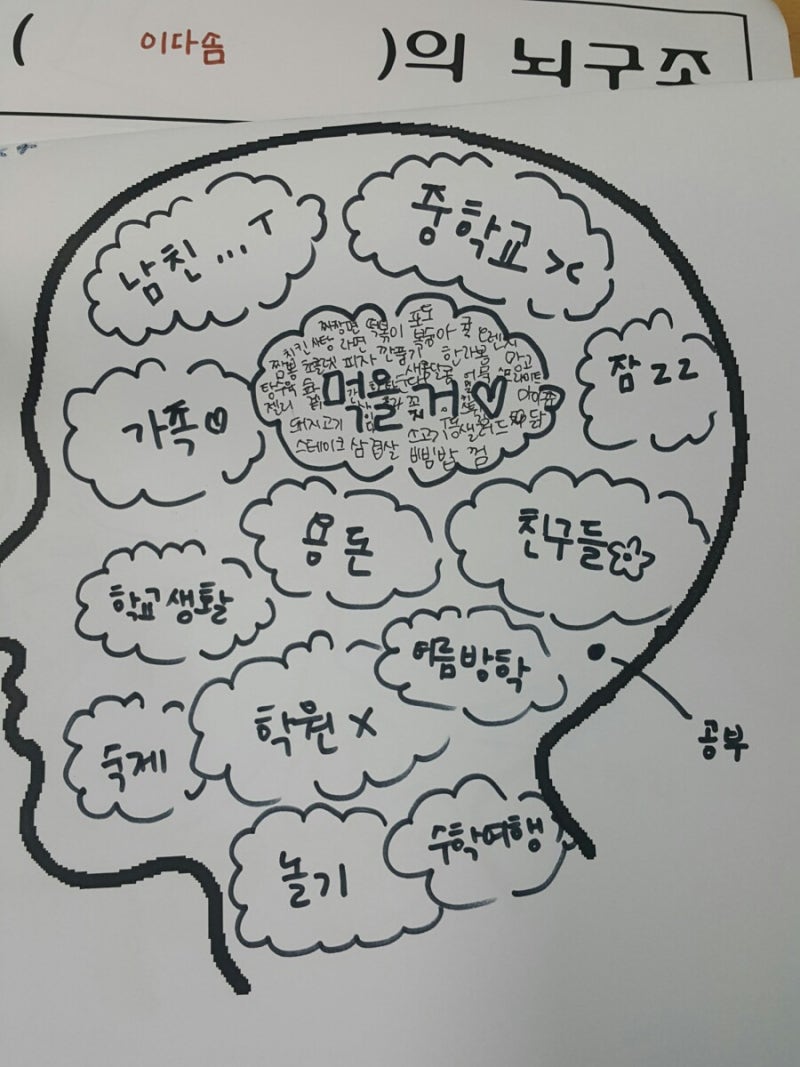 ( 이다솜 )의 뇌구조
남친...ㅜ
중학교 ><
짜장면 떡볶이 포도
치킨 사탕 라면 깐풍기 복숭아 귤 오렌지
짬뽕 초콜릿 피자 한라봉 망고
탕수육
젤리
먹을거♡
돼지고기 소고기 샐러드
스테이크 삼겹살 비빔밥 껌
잠 zz
가족♡
용돈
친구들
학교생활
여름방학
공부
학원 X
숙제
놀기
수학여행